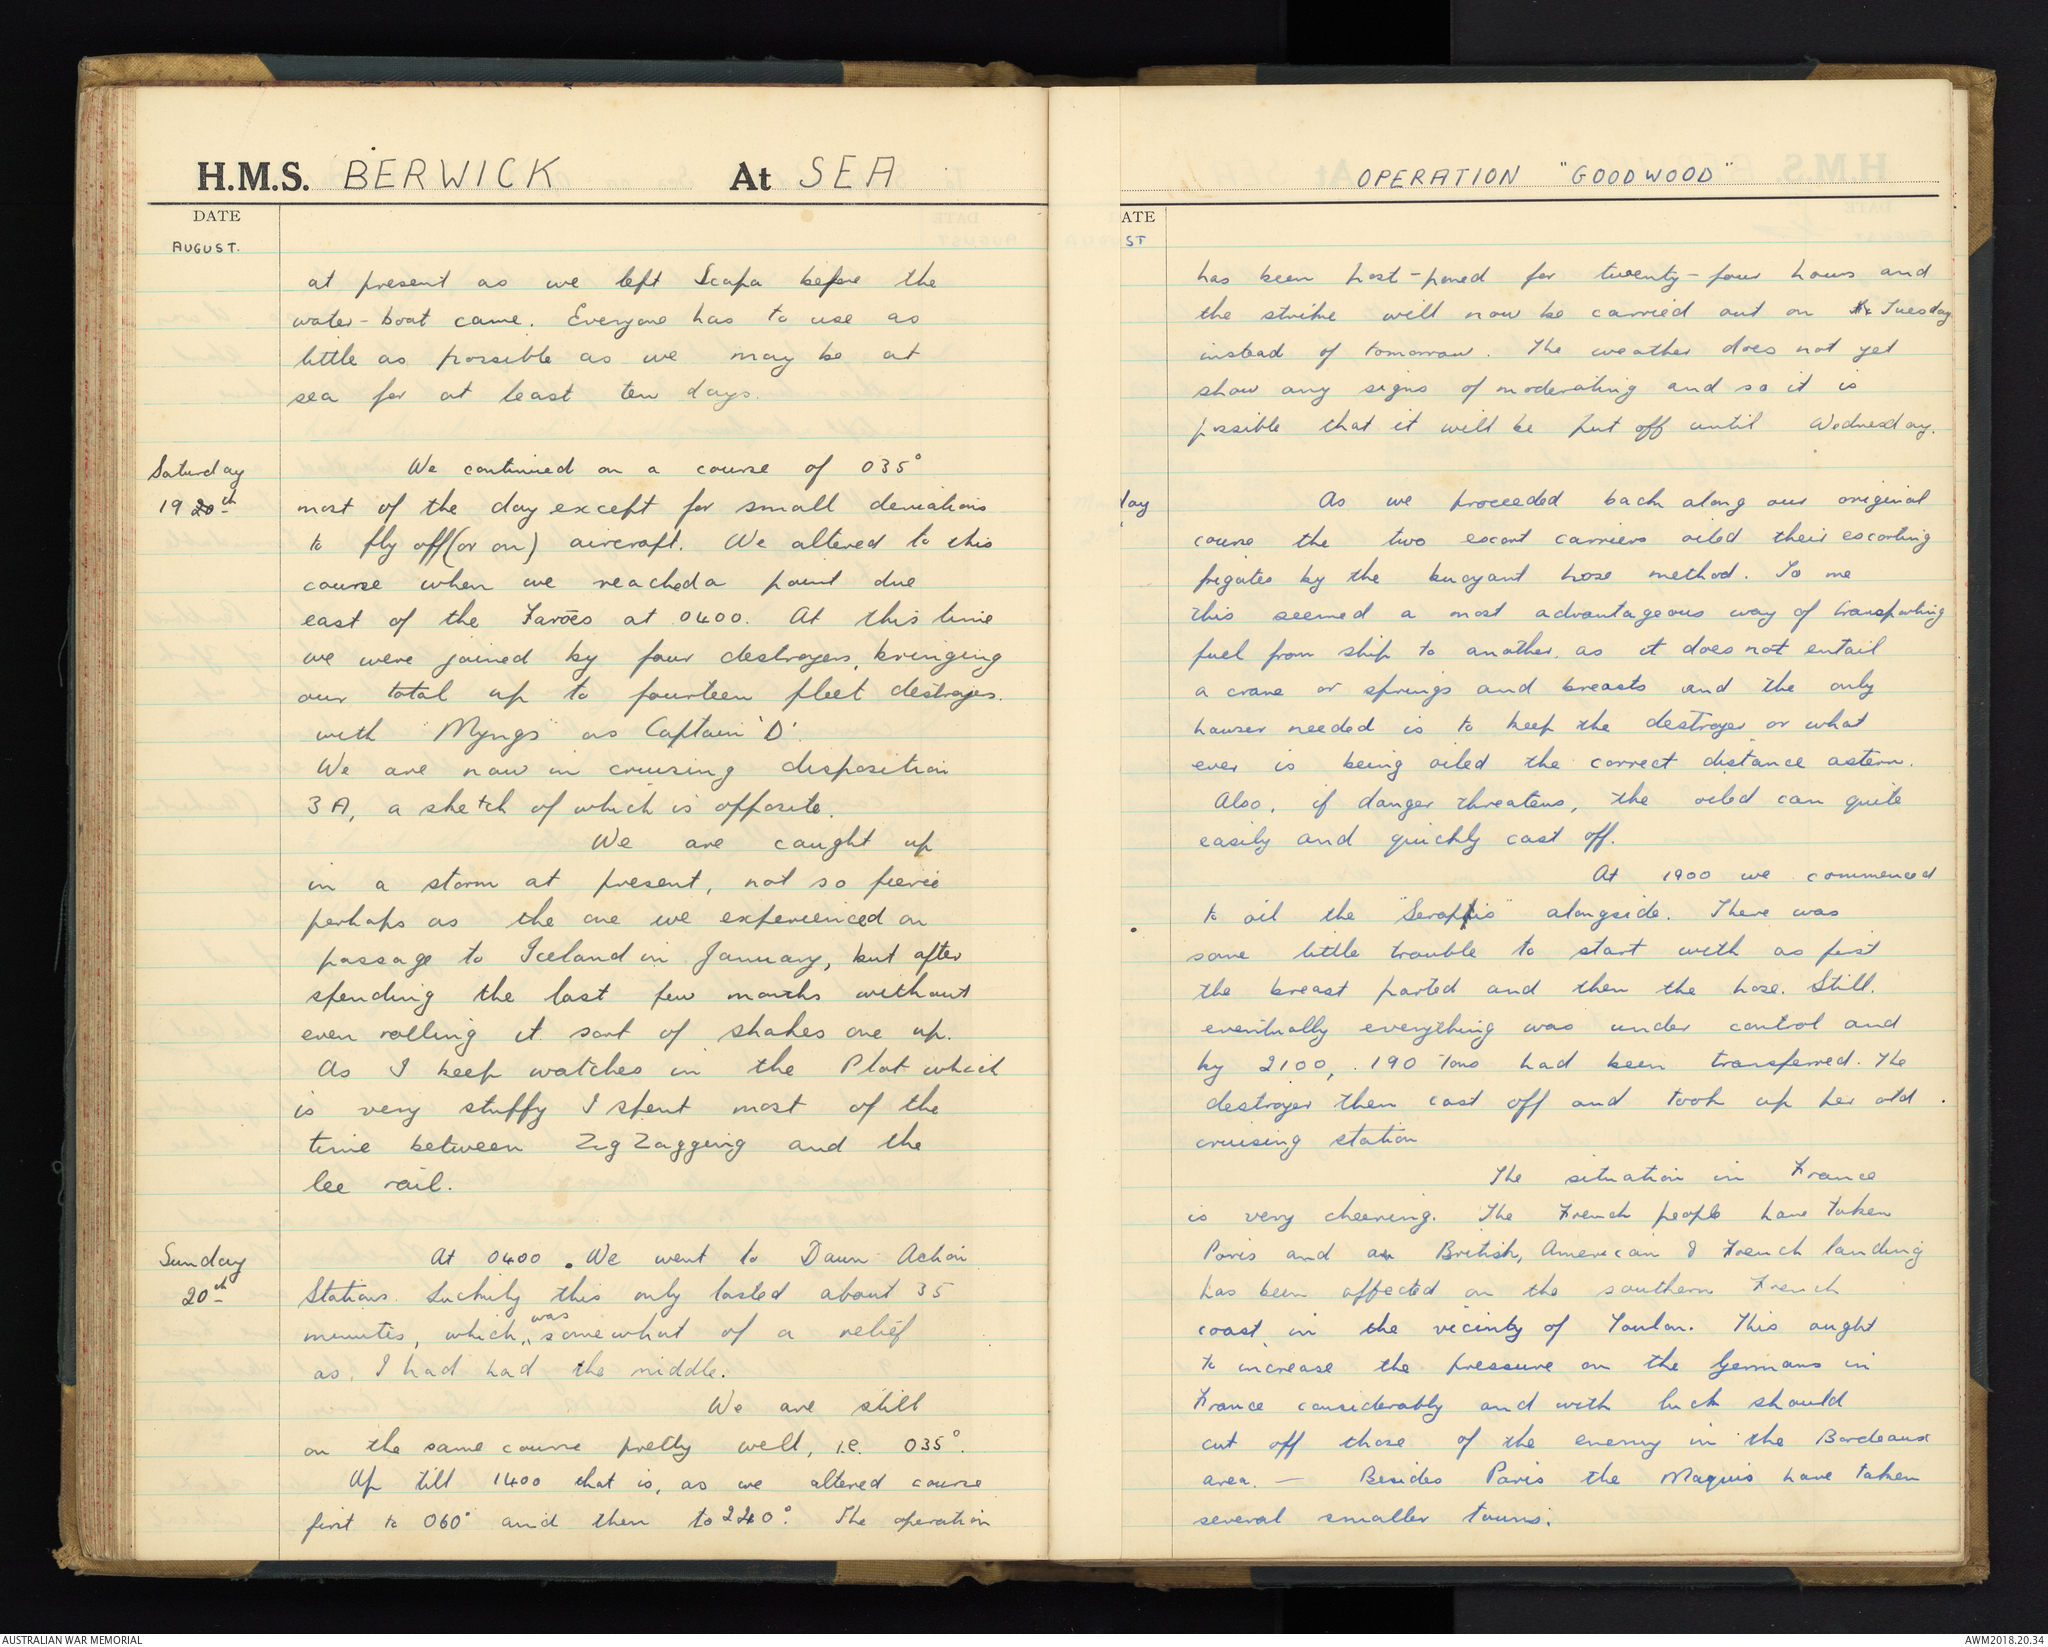 H.M.S. BERWICK At SEA
DATE
AUGUST.
at present as we left Scapa before the
water-boat came. Everyone has to use as
little as possible as we may be at
sea for at least ten days.
Saturday We continued on a course of 035°
19 20th most of the day except for small deviations
to fly off (or on) aircraft. We altered to this
course when we reached a point due
east of the Faroes at 0400. At this time
we were joined by four destroyers, bringing
our total up to fourteen fleet destroyes.
with "Myngs" as Captain 'D'.
We are now in cruising disposition
3A, a sketch of which is opposite.
We are caught up
in a storm at present, not so fierce
perhaps as the one we experienced on
passage to Iceland in January, but after
spending the last few months without
even rolling it sort of shakes one up.
As I keep watches in the Plot which
is very stuffy I spent most of the
time between Zig Zagging and the
lee rail.
Sunday At 0400 . We went to Dawn Action
20th Stations. Luckily this only lasted about 35
minutes, which was somewhat of a relief
as I had had the middle.
We are still
on the same course pretty well, i.e. 035°.
Up till 1400 that is, as we altered course
first to 060° and then to 220°. The operation
OPERATION "GOODWOOD"
ATE
ST
has been post-poned for twenty-four hours and
the strike will now be carried out on Tuesday
instead of tomorrow. The weather does not yet
show any signs of moderating and so it is
possible that it will be put off until Wednesday.
day As we proceeded back along our original
course the two escort carriers oiled their escorting
frigates by the buoyant hose method. To me
this seemed a most advantageous way of transporting
fuel from ship to another, as it does not entail
a crane or springs and breasts and the only
hawser needed is to keep the destroyer or what
ever is being oiled the correct distance astern.
Also, if danger threatens, the oiled can quite
easily and quickly cast off.
At 1900 we commenced
to oil the "Serapis" alongside. There was
some little trouble to start with as first
the breast parted and then the hose. Still,
eventually everything was under control and
by 2100, 190 Tons had been transferred. The
destroyer then cast off and took up her old
cruising station
The situation in France
is very cheering. The French people have taken
Paris and an British, American & French landing
has been affected on the southern French
coast in the vicinity of Toulon. This ought
to increase the pressure on the Germans in
France considerably and with luck should
cut off those of the enemy in the Bordeaux
area. — Besides Paris the Maquis have taken
several smaller towns.
AUSTRALIAN WAR MEMORIAL
AWM2018.20.34